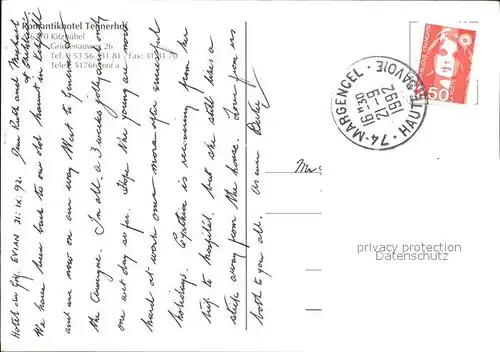 Romantikhotel Tennerhof
6370 Kitzbühel
Griesenauweg 26
Tel. 0 53 56 31 81 Fax: 31 81 70
Telex 51766
Hotel du Golf. EVIAN 21: IX. 92. Dear Ruth and Michael
We have been back to our old haunt in Kitzbühel
and are now on our way West to
the Auvergne. In all a 3 weeks jolly and only
one wet day so far. Hope the young are now
hard at work once more after successful
holidays. Cynthia is recovering from her
trip to hospital. but she still likes a
stick away from the house. Love from us
both to you all. As ever
16 H30
21-9
1992
74-MARGENCEL
HAUTE SAVOIE
50
privacy protection
Datenschutz